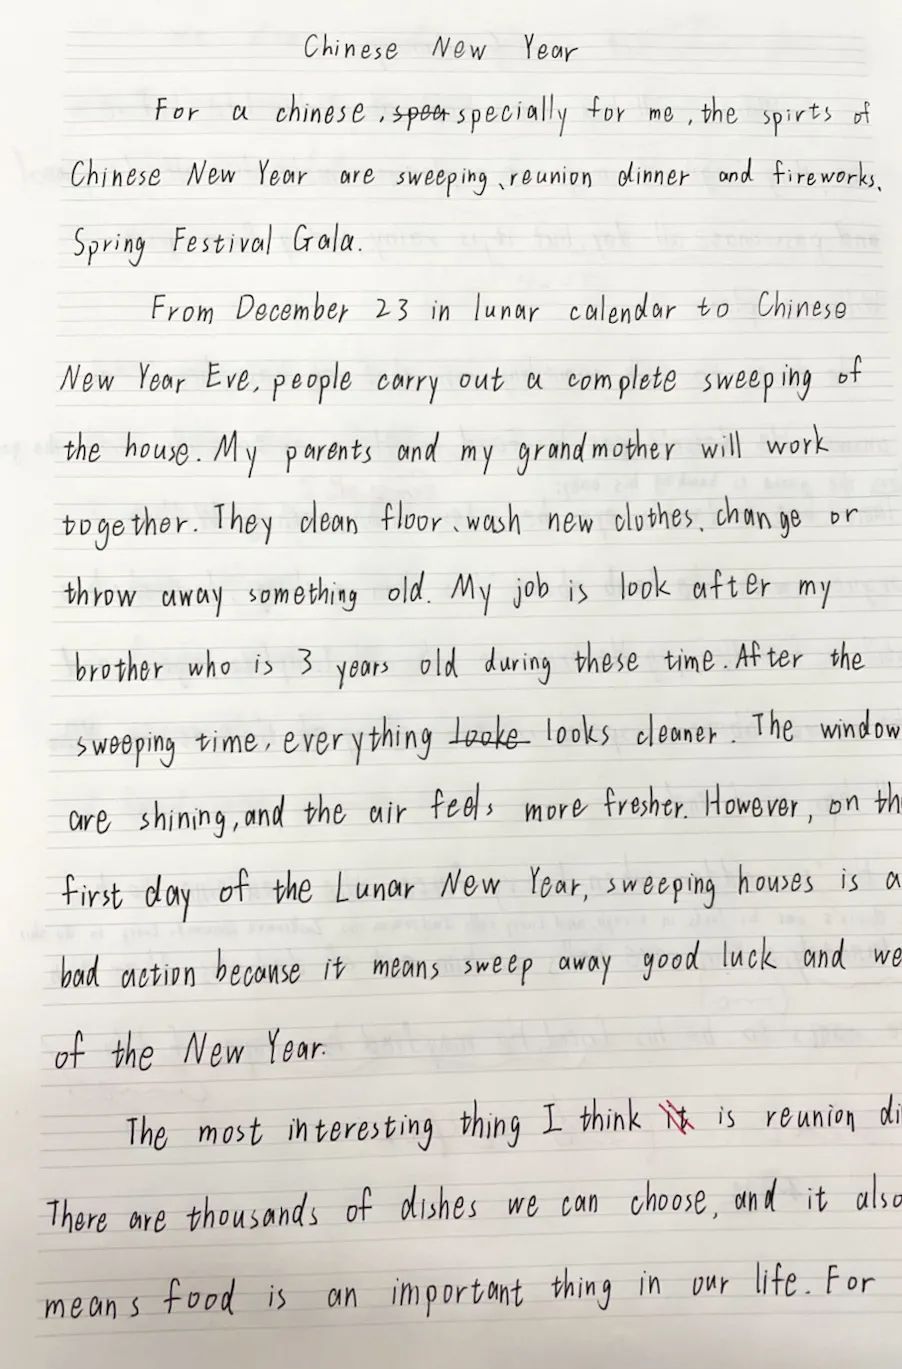 Chinese New Year
For a chinese, specially for me, the spirts of
Chinese New Year are sweeping、reunion dinner and fireworks、
Spring Festival Gala.
From December 23 in lunar calendar to Chinese
New Year Eve, people carry out a complete sweeping of
the house. My parents and my grandmother will work
together. They clean floor、wash new clothes、change or
throw away something old. My job is look after my
brother who is 3 years old during these time. After the
sweeping time, everything looke looks cleaner. The window
are shining, and the air feels more fresher. However, on th
first day of the Lunar New Year, sweeping houses is a
bad action because it means sweep away good luck and we
of the New Year.
The most interesting thing I think it is reunion di
There are thousands of dishes we can choose, and it also
means food is an important thing in our life. For